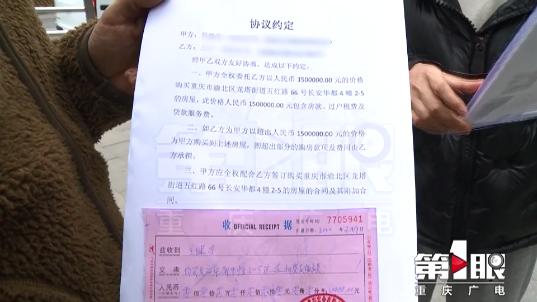 协议约定
甲方：
乙方：
经甲乙双方友好协商，达成以下约定。
一、甲方全权委托乙方以人民币 1500000.00 元的价格
购买重庆市渝北区龙塔街道五红路 66 号长安华都 4 幢 2-5
的房屋，此价格人民币 1500000.00 元包含房款、过户税费及
贷款服务费。
二、如乙方为甲方以超出人民币 1500000.00 元的价格
为甲方购买到上述房屋，则超出部分的购房款项及费用由乙
方承担。
三、甲方应全权配合乙方签订购买重庆市渝北区龙塔
街道五红路 66 号长安华都 4 幢 2-5 的房屋的合同及其附加合
同。
收 OFFICIAL RECEIPT 据
7705941
兹收到
交来
人民币
第1眼
重庆广电